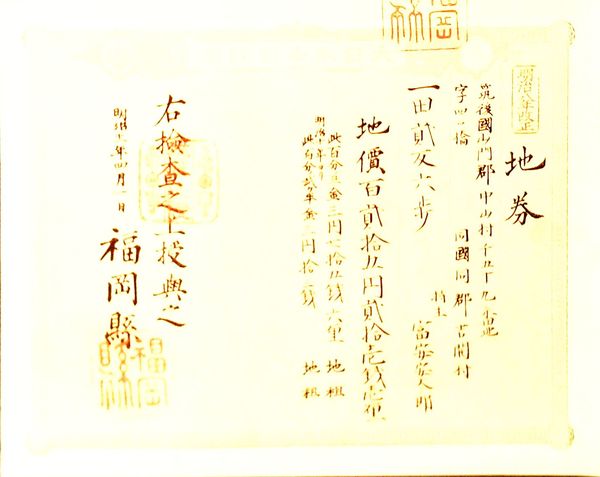 明治八年改正
地券
筑後國山門郡中山村千五十九番地
字四ツ橋
同國同郡吉開村
持主 富安
一田貳反六歩
地價百貳拾五円貳拾壱銭壱厘
此百分ノ三金三円七拾五銭六厘 地租
明治十年ヨリ
此百分ノ二ヶ半金三円拾三銭 地租
右檢査之上授與之
明治 年四月一日
福岡縣